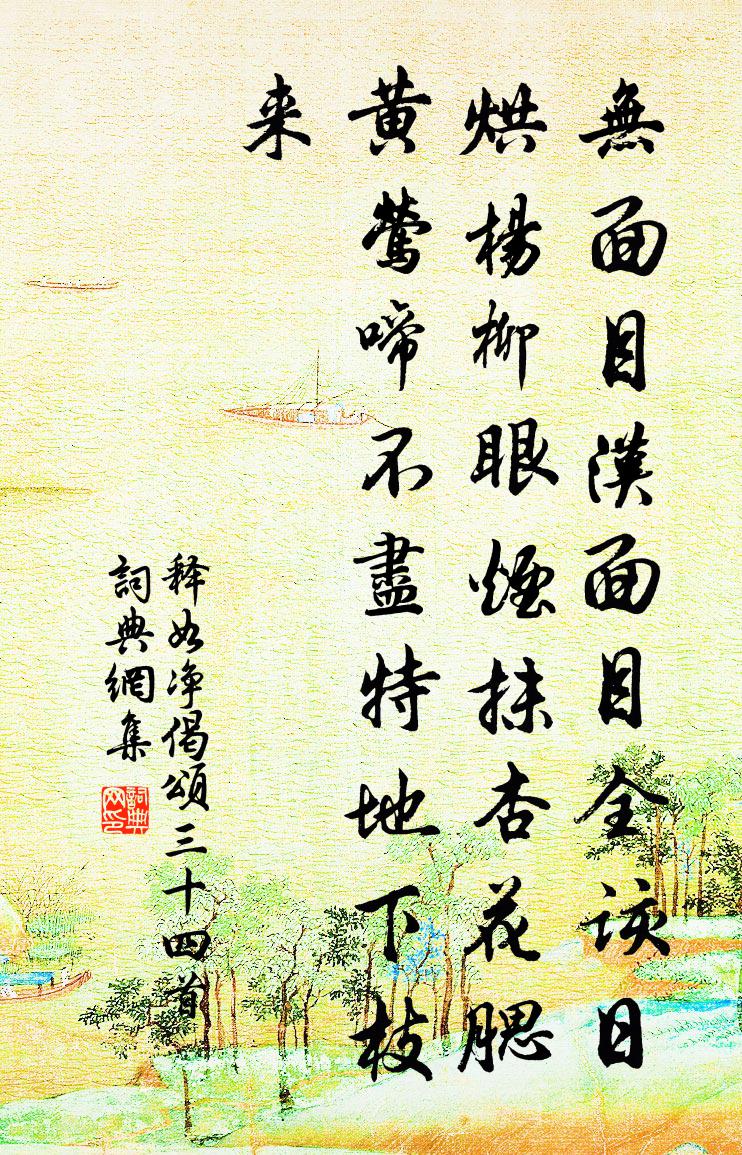 無面目漢面目全該日
烘楊柳眼煙抹杏花腮
黄鶯啼不盡特地下枝
来
释如净偈頌三十四首
詞典網集
詞典
网印